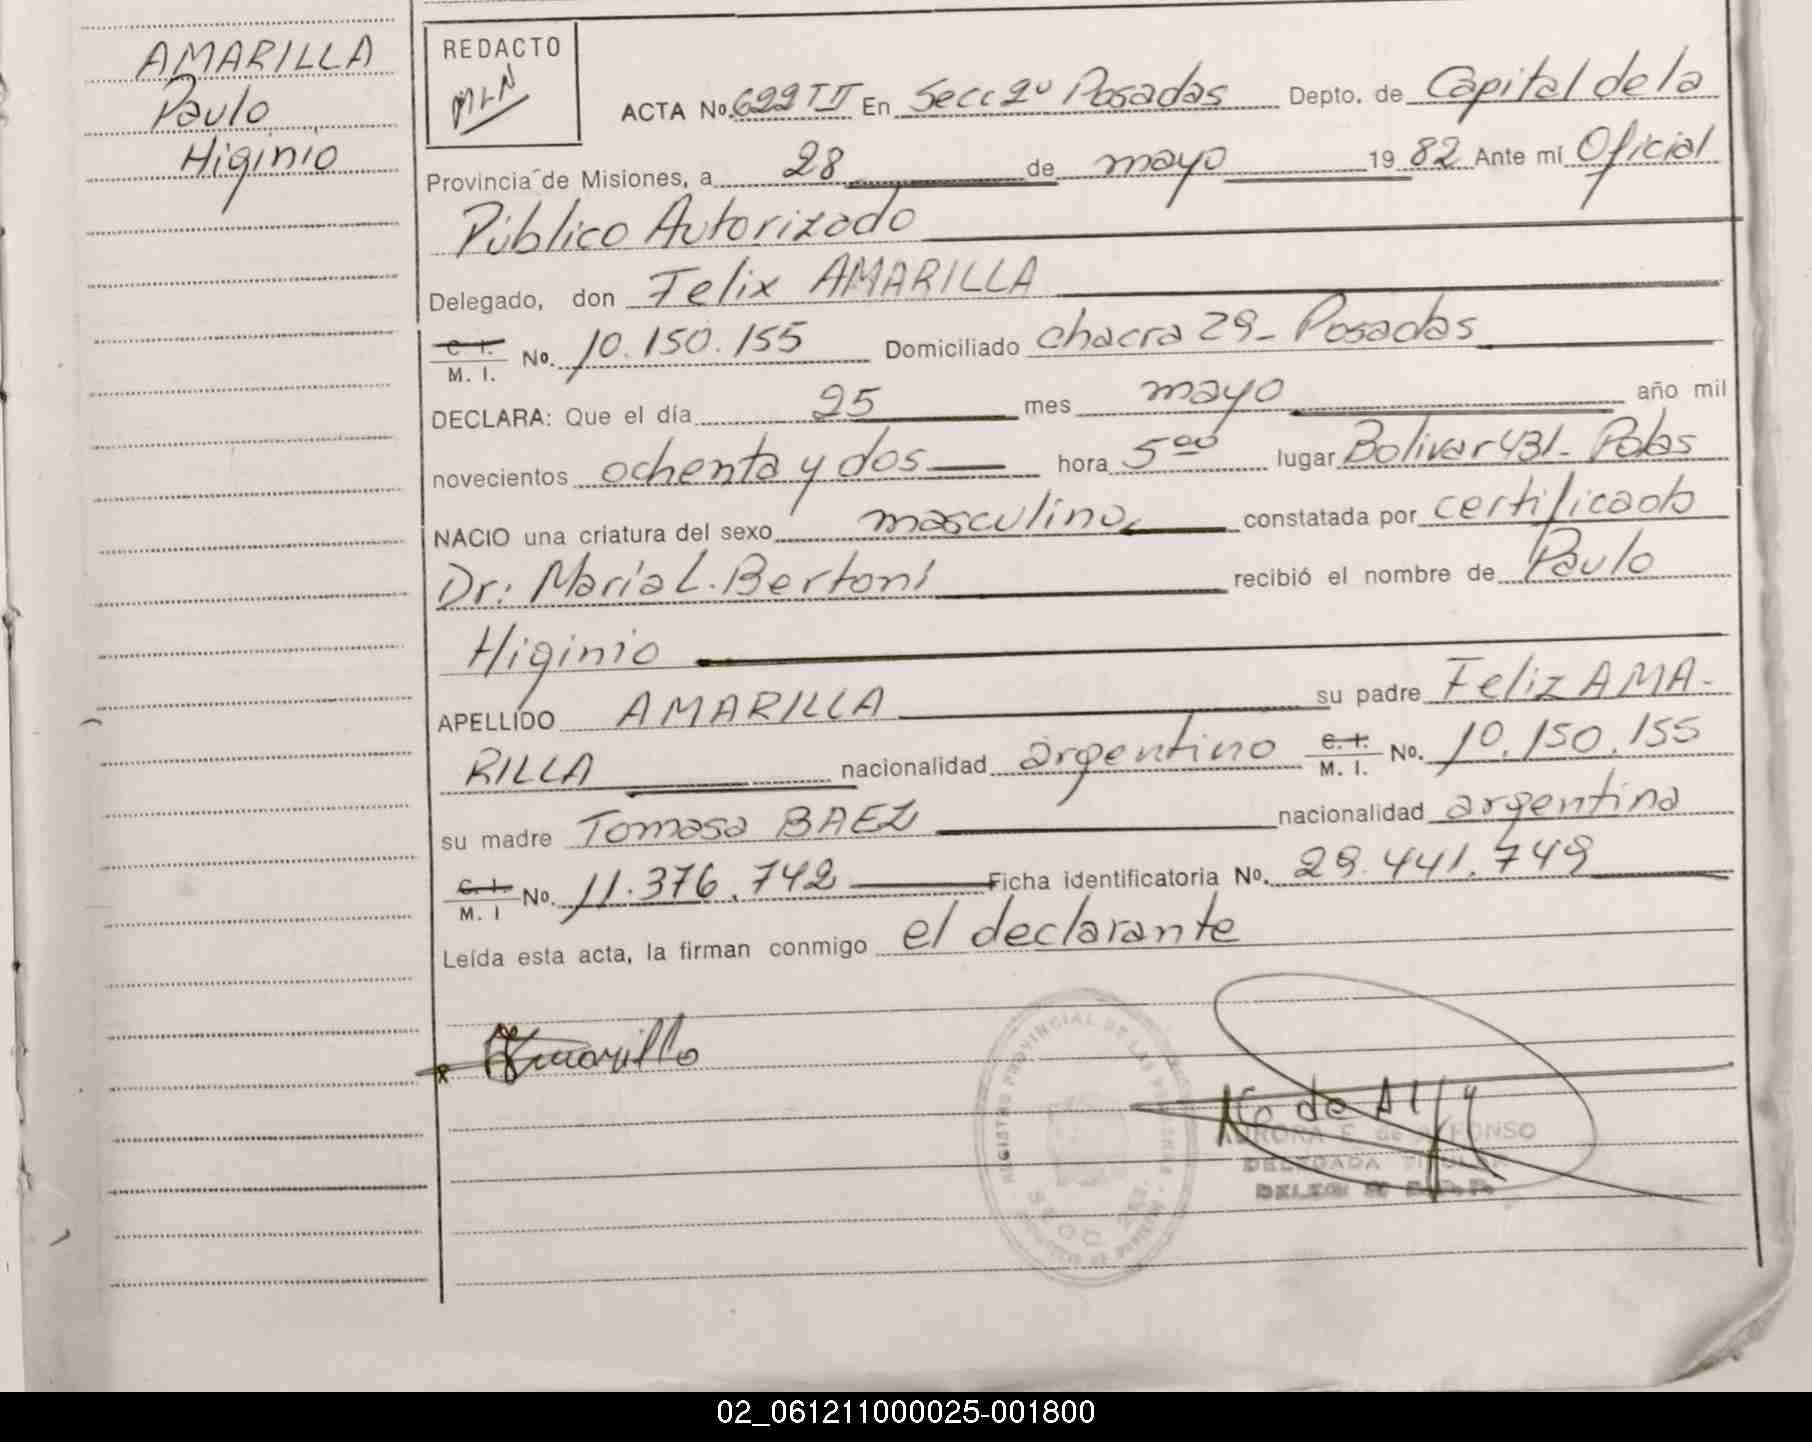 AMARILLA
Paulo
Higinio
REDACTO
MLN
ACTA No. 622 TII En Secc 2º Posadas Depto. de Capital de la
Provincia de Misiones, a 28 de mayo 19 82 Ante mí Oficial
Público Autorizado
Delegado, don Felix AMARILLA
C. I.
M. I. No. 10.150.155 Domiciliado chacra 29 - Posadas
DECLARA: Que el día 25 mes mayo año mil
novecientos ochenta y dos hora 5 00 lugar Bolivar 431 - Pdas
NACIO una criatura del sexo masculino constatada por certificado
Dr: Maria L. Bertoni recibió el nombre de Paulo
Higinio
APELLIDO AMARILLA su padre Feliz AMA-
RILLA nacionalidad argentino C. I. M. I. No. 10.150.155
su madre Tomasa BAEZ nacionalidad argentina
C. I.
M. I No. 11.376.742 Ficha identificatoria No. 29.441.749
Leída esta acta, la firman conmigo el declarante
Amarilla
REGISTRO PROVINCIAL DE LAS PERSONAS
AURORA E. de ALFONSO
DELEGADA TITULAR
02_061211000025-001800